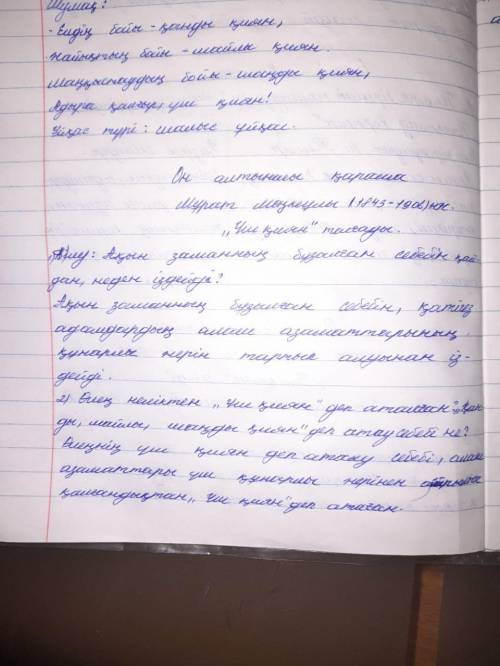 Шумақ:
- Еділдің бойы - қанды қиян,
Жайықтың бойы - майлы қиян.
Маңғыстаудың бойы - шаңды қиян,
Адыра қалғыр, үш қиян!
Ұйқас түрі: шалыс ұйқас.
Он алтыншы қараша
Мұрат Мөңкеұлы (1843-1906) жж.
"Үш қиян" толғауы.
Білу: Ақын заманның бұзылған себебін қай-
дан, неден іздейді?
Ақын заманның бұзылған себебін, қатігез
адамдардың алаш азаматтарының
құнарлы жерін тартып алуынан із-
дейді.
2) Өлең неліктен "Үш қиян" деп аталған? "Қан-
ды, майлы, шаңды қиян" деп атау себебі не?
Өлеңнің үш қиян деп аталу себебі, алаш
азаматтары үш құнарлы жерінен айрылып
қалғандықтан, "Үш қиян" деп аталған.